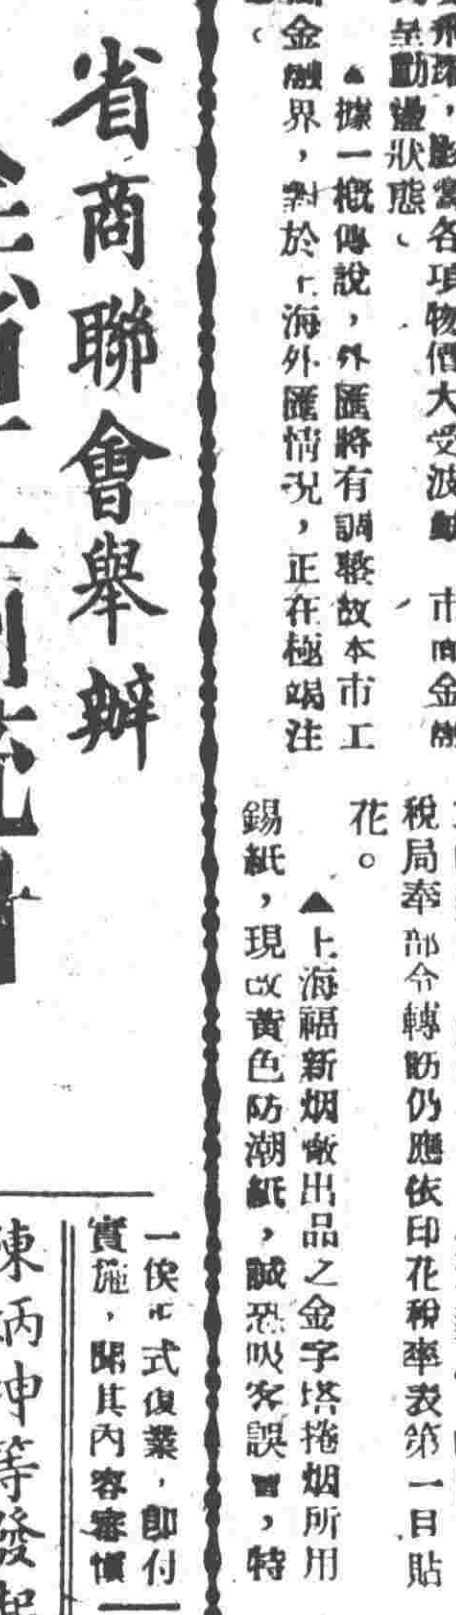 各項物價大受波動
市商金融
呈動盪狀態、
▲據一概傳說，外匯將有調整故本市工
商金融界，對於上海外匯情況，正在極竭注
稅局奉部令轉飭仍應依印花稅率表第一目貼
花。
▲上海福新烟廠出品之金字塔捲烟所用
錫紙，現改黃色防潮紙，誠恐吸客誤會，特
省商聯會舉辦
一俟正式復業，即付
實施，聞其內容審慎
陳炳坤等發起